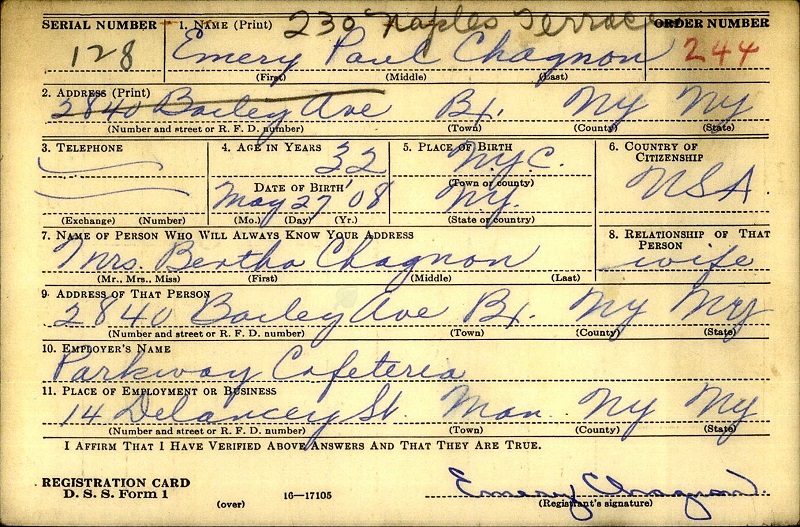 230 Naples Terrace
SERIAL NUMBER 1. NAME (Print) ORDER NUMBER
128 Emery Paul Chagnon 244
(First) (Middle) (Last)
2. ADDRESS (Print)
2840 Bailey Ave Bx. NY NY
(Number and street or R. F. D. number) (Town) (County) (State)
3. TELEPHONE 4. AGE IN YEARS 5. PLACE OF BIRTH 6. COUNTRY OF CITIZENSHIP
32 N.Y.C. USA
DATE OF BIRTH (Town or county)
May 27 '08 NY.
(Exchange) (Number) (Mo.) (Day) (Yr.) (State or country)
7. NAME OF PERSON WHO WILL ALWAYS KNOW YOUR ADDRESS 8. RELATIONSHIP OF THAT PERSON
Mrs. Bertha Chagnon wife
(Mr., Mrs., Miss) (First) (Middle) (Last)
9. ADDRESS OF THAT PERSON
2840 Bailey Ave Bx. NY NY
(Number and street or R. F. D. number) (Town) (County) (State)
10. EMPLOYER'S NAME
Parkway Cafeteria
11. PLACE OF EMPLOYMENT OR BUSINESS
14 Delancey St Man. NY NY
(Number and street or R. F. D. number) (Town) (County) (State)
I AFFIRM THAT I HAVE VERIFIED ABOVE ANSWERS AND THAT THEY ARE TRUE.
REGISTRATION CARD
D. S. S. Form 1 (over) 16—17105 Emery Chagnon.
(Registrant's signature)